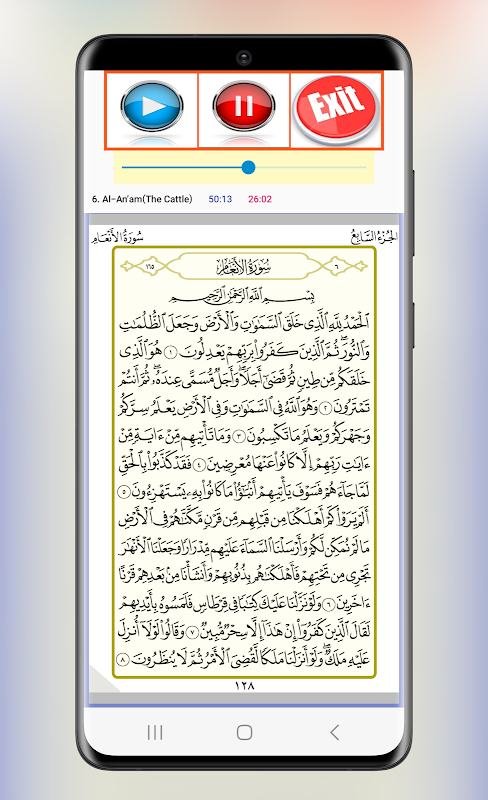 Exit
6. Al-An'am(The Cattle) 50:13 26:02
سُورَةُ الأَنْعَامِ الجُزْءُ السَّابِعُ
٦ سُورَةُ الأَنْعَامِ ١٦٥
بِسْمِ ٱللَّهِ ٱلرَّحْمَٰنِ ٱلرَّحِيمِ
ٱلْحَمْدُ لِلَّهِ ٱلَّذِى خَلَقَ ٱلسَّمَٰوَٰتِ وَٱلْأَرْضَ وَجَعَلَ ٱلظُّلُمَٰتِ
وَٱلنُّورَ ۖ ثُمَّ ٱلَّذِينَ كَفَرُوا۟ بِرَبِّهِمْ يَعْدِلُونَ ١ هُوَ ٱلَّذِى
خَلَقَكُم مِّن طِينٍ ثُمَّ قَضَىٰٓ أَجَلًا ۖ وَأَجَلٌ مُّسَمًّى عِندَهُۥ ۖ ثُمَّ أَنتُمْ
تَمْتَرُونَ ٢ وَهُوَ ٱللَّهُ فِى ٱلسَّمَٰوَٰتِ وَفِى ٱلْأَرْضِ ۖ يَعْلَمُ سِرَّكُمْ
وَجَهْرَكُمْ وَيَعْلَمُ مَا تَكْسِبُونَ ٣ وَمَا تَأْتِيهِم مِّنْ ءَايَةٍ مِّنْ
ءَايَٰتِ رَبِّهِمْ إِلَّا كَانُوا۟ عَنْهَا مُعْرِضِينَ ٤ فَقَدْ كَذَّبُوا۟ بِٱلْحَقِّ
لَمَّا جَآءَهُمْ ۖ فَسَوْفَ يَأْتِيهِمْ أَنۢبَٰٓؤُا۟ مَا كَانُوا۟ بِهِۦ يَسْتَهْزِءُونَ ٥
أَلَمْ يَرَوْا۟ كَمْ أَهْلَكْنَا مِن قَبْلِهِم مِّن قَرْنٍ مَّكَّنَّٰهُمْ فِى ٱلْأَرْضِ
مَا لَمْ نُمَكِّن لَّكُمْ وَأَرْسَلْنَا ٱلسَّمَآءَ عَلَيْهِم مِّدْرَارًا وَجَعَلْنَا ٱلْأَنْهَٰرَ
تَجْرِى مِن تَحْتِهِمْ فَأَهْلَكْنَٰهُم بِذُنُوبِهِمْ وَأَنشَأْنَا مِنۢ بَعْدِهِمْ قَرْنًا
ءَاخَرِينَ ٦ وَلَوْ نَزَّلْنَا عَلَيْكَ كِتَٰبًا فِى قِرْطَاسٍ فَلَمَسُوهُ بِأَيْدِيهِمْ
لَقَالَ ٱلَّذِينَ كَفَرُوٓا۟ إِنْ هَٰذَآ إِلَّا سِحْرٌ مُّبِينٌ ٧ وَقَالُوا۟ لَوْلَآ أُنزِلَ
عَلَيْهِ مَلَكٌ ۖ وَلَوْ أَنزَلْنَا مَلَكًا لَّقُضِىَ ٱلْأَمْرُ ثُمَّ لَا يُنظَرُونَ ٨
١٢٨